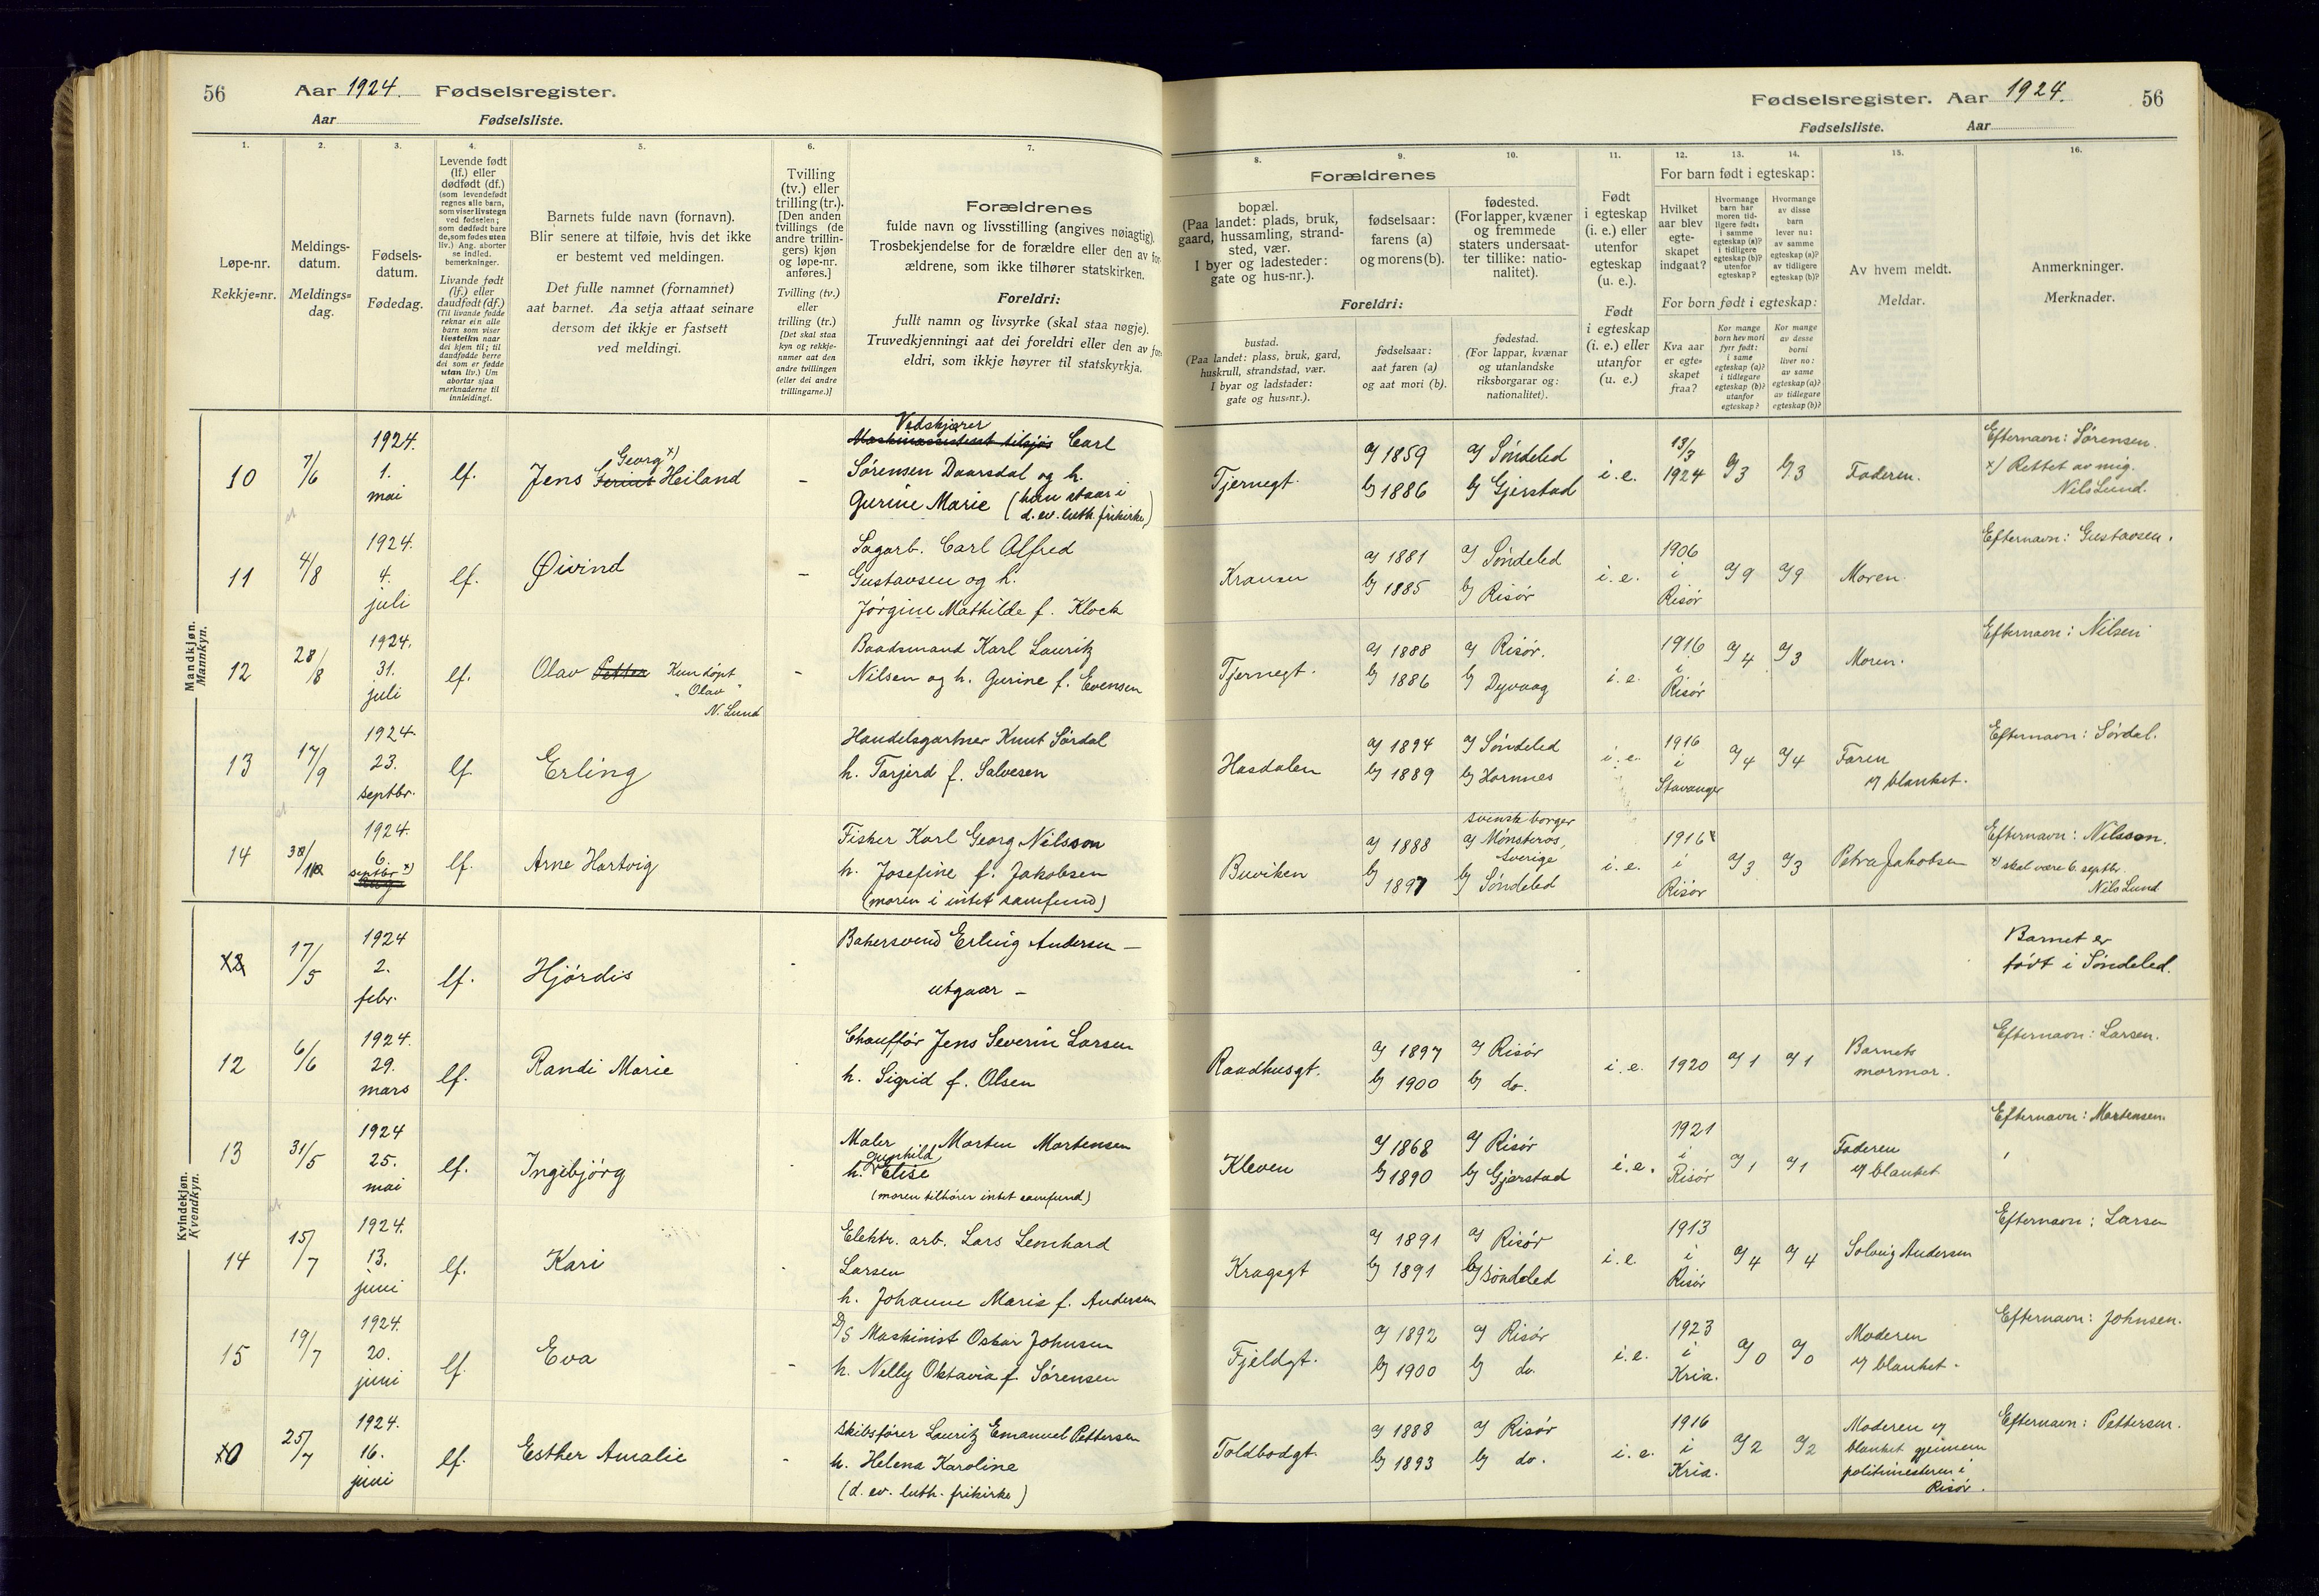 56 Aar 1924. Fødselsregister.
Aar Fødselsliste.
Fødselsregister. Aar 1924. 56
Fødselsliste. Aar
1. 2. 3. 4. 5. 6. 7.
8. 9. 10. 11. 12. 13. 14. 15. 16.
Løpe-nr.
Rekkje-nr.
Meldings-
datum.
Meldings-
dag.
Fødsels-
datum.
Fødedag.
Levende født
(lf.) eller
dødfødt (df.)
(som levendefødt
regnes alle barn,
som viser livstegn
ved fødselen;
som dødfødt bare
de, som fødes uten
liv.) Ang. aborter
se indled.
bemerkninger.
Livande født
(lf.) eller
daudfødt (df.)
(Til livande fødde
reknar ein alle
barn som viser
livsteikn naar
dei kjem til; til
daudfødde berre
dei som er fødde
utan liv.) Um
abortar sjaa
merknaderne til
innleidingi.
Barnets fulde navn (fornavn).
Blir senere at tilføie, hvis det ikke
er bestemt ved meldingen.
Det fulle namnet (fornamnet)
aat barnet. Aa setja attaat seinare
dersom det ikkje er fastsett
ved meldingi.
Tvilling
(tv.) eller
trilling (tr.).
[Den anden
tvillings (de
andre trillin-
gers) kjøn
og løpe-nr.
anføres.]
Tvilling (tv.)
eller
trilling (tr.)
[Det skal staa
kyn og rekkje-
numer aat den
andre tvillingen
(eller dei andre
trillingarne.)]
Forældrenes
fulde navn og livsstilling (angives nøiagtig).
Trosbekjendelse for de forældre eller den av for-
ældrene, som ikke tilhører statskirken.
Foreldri:
fullt namn og livsyrke (skal staa nøgje).
Truvedkjenningi aat dei foreldri eller den av for-
eldri, som ikkje høyrer til statskyrkja.
Forældrenes
bopæl.
(Paa landet: plads, bruk,
gaard, hussamling, strand-
sted, vær.
I byer og ladesteder:
gate og hus-nr.).
Foreldri:
bustad.
(Paa landet: plass, bruk, gard,
huskrull, strandstad, vær.
I byar og ladstader:
gate og hus-nr.).
fødselsaar:
farens (a)
og morens (b).
fødselsaar:
aat faren (a)
og aat mori (b).
fødested.
(For lapper, kvæner
og fremmede
staters undersaat-
ter tillike: natio-
nalitet).
fødestad.
(For lappar, kvænar
og utanlandske
riksborgarar og:
nationalitet).
Født
i egteskap
(i. e.) eller
utenfor
egteskap
(u. e.).
Født
i egteskap
(i. e.) eller
utanfor
(u. e.)
For barn født i egteskap:
Hvilket
aar blev
egte-
skapet
indgaat?
Hvormange
barn har
moren tid-
ligere født:
i samme
egteskap (a)?
i tidligere
egteskap (b)?
utenfor
egteskap?
Hvormange
av disse
barn
lever nu:
av samme
egteskap (a)?
av tidligere
egteskap (b)?
For born født i egteskap:
Kva aar
er egte-
skapet
fraa?
Kor mange
born hev mori
fyrr født:
i same
egteskap (a)?
i tidlegare
egteskap (b)?
utanfor
egteskap?
Kor mange
av desse
borni
liver no:
av same
egteskap (a)?
av tidlegare
egteskap (b)?
Av hvem meldt.
Meldar.
Anmerkninger.
Merknader.
Mandkjøn.
Mannkyn.
10 7/6 1924. 1. mai lf. Jens Georg x) Heiland -
Vedskjærer
Maskinassistent tilsjøs Carl
Sørensen Daarsdal og h.
Gurine Marie (hun staar i
d. ev. luth. frikirke)
Tjernegt. a) 1859 b) 1886 a) Søndeled b) Gjerstad i. e. 13/3 1924 a) 3 a) 3 Faderen.
Efternavn: Sørensen.
x) Rettet av mig.
Nils Lund.
11 4/8 1924. 4. juli lf. Øivind -
Sagarb. Carl Alfred
Gustavsen og h.
Jørgine Mathilde f. Klock
Kransen a) 1881 b) 1885 a) Søndeled b) Risør i. e. 1906 i Risør a) 9 a) 9 Moren.
Efternavn: Gustavsen.
12 28/8 1924. 31. juli lf. Olav Petter Kun døpt
"Olav"
N. Lund
-
Baadsmand Karl Lauritz
Nilsen og h. Gurine f. Evensen
Tjernegt. a) 1888 b) 1886 a) Risør. b) Dyvaag i. e. 1916 i Risør a) 4 a) 3 Moren.
Efternavn: Nilsen
13 17/9 1924. 23. septbr. lf. Erling
Handelsgartner Knut Sørdal
h. Tarjerd f. Salvesen
Hasdalen a) 1894 b) 1889 a) Søndeled b) Hornnes i. e. 1916 i Stavanger a) 4 a) 4 Faren
pr blanket.
Efternavn: Sørdal.
14 1924. 6. septbr x) lf. Arne Hartvig
Fisker Karl Georg Nilsson
h. Josefine f. Jakobsen
(moren i intet samfund)
Buviken a) 1888 b) 1897 svensk borger a) Mönsterås, Sverige b) Søndeled i. e. 1916 i Risør a) 3 a) 3 Petra Jakobsen
Efternavn: Nilsson.
x) skal være 6. septbr.
Nils Lund
Kvindekjøn.
Kvendkyn.
17/5 1924 2. febr. lf. Hjørdis -
Bakersvend Erling Andersen —
utgaar —
Barnet er
født i Søndeled.
12 6/6 1924. 29. mars lf. Randi Marie
Chauffør Jens Severin Larsen
h. Sigrid f. Olsen
Raadhusgt. a) 1897 b) 1900 a) Risør b) do. i. e. 1920 a) 1 a) 1 Barnets
mormor.
Efternavn: Larsen.
13 31/5 1924 25. mai lf. Ingebjørg
Maler Morten Mortensen
Gunhild
h. Elise
(moren tilhører intet samfund)
Kleven a) 1868 b) 1890 a) Risør b) Gjerstad i. e. 1921 i Risør a) 1 a) 1 Faderen
pr blanket
Efternavn: Mortensen.
14 15/7 1924. 13. juni lf. Kari
Elektr. arb. Lars Leonhard
Larsen
h. Johanne Marie f. Andersen
Kragsgt a) 1891 b) 1891 a) Risør b) Søndeled i. e. 1913 i Risør a) 4 a) 4 Solveig Andersen
Efternavn: Larsen
15 19/7 1924. 20. juni lf. Eva -
D/S Maskinist Oskar Johnsen
h. Nelly Oktavia f. Sørensen
Fjeldgt. a) 1892 b) 1900 a) Risør b) do. i. e. 1923 i Kria. a) 0 a) 0 Moderen
pr blanket.
Efternavn: Johnsen.
25/7 1924. 16. juni lf. Esther Amalie -
Skibsfører Lauritz Emanuel Pettersen
h. Helena Karoline
(d. ev. luth. frikirke)
Toldbodgt. a) 1888 b) 1893 a) Risør b) do. i. e. 1916 i Kria. a) 2 a) 2 Moderen pr
blanket gjennem
politimesteren i
Risør.
Efternavn: Pettersen.